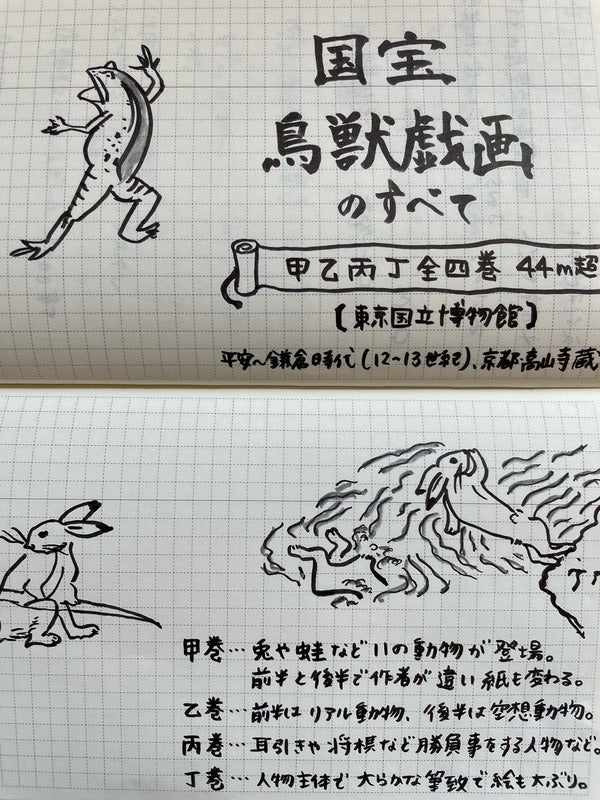 国宝
鳥獣戯画
のすべて
甲乙丙丁全四巻 44m超
[東京国立博物館]
平安〜鎌倉時代(12〜13世紀)、京都・高山寺蔵
甲巻…兎や蛙など11の動物が登場。
前半と後半で作者が違い紙も変わる。
乙巻…前半はリアル動物、後半は空想動物。
丙巻…耳引きや将棋など勝負事をする人物など。
丁巻…人物主体で大らかな筆致で絵も大ぶり。